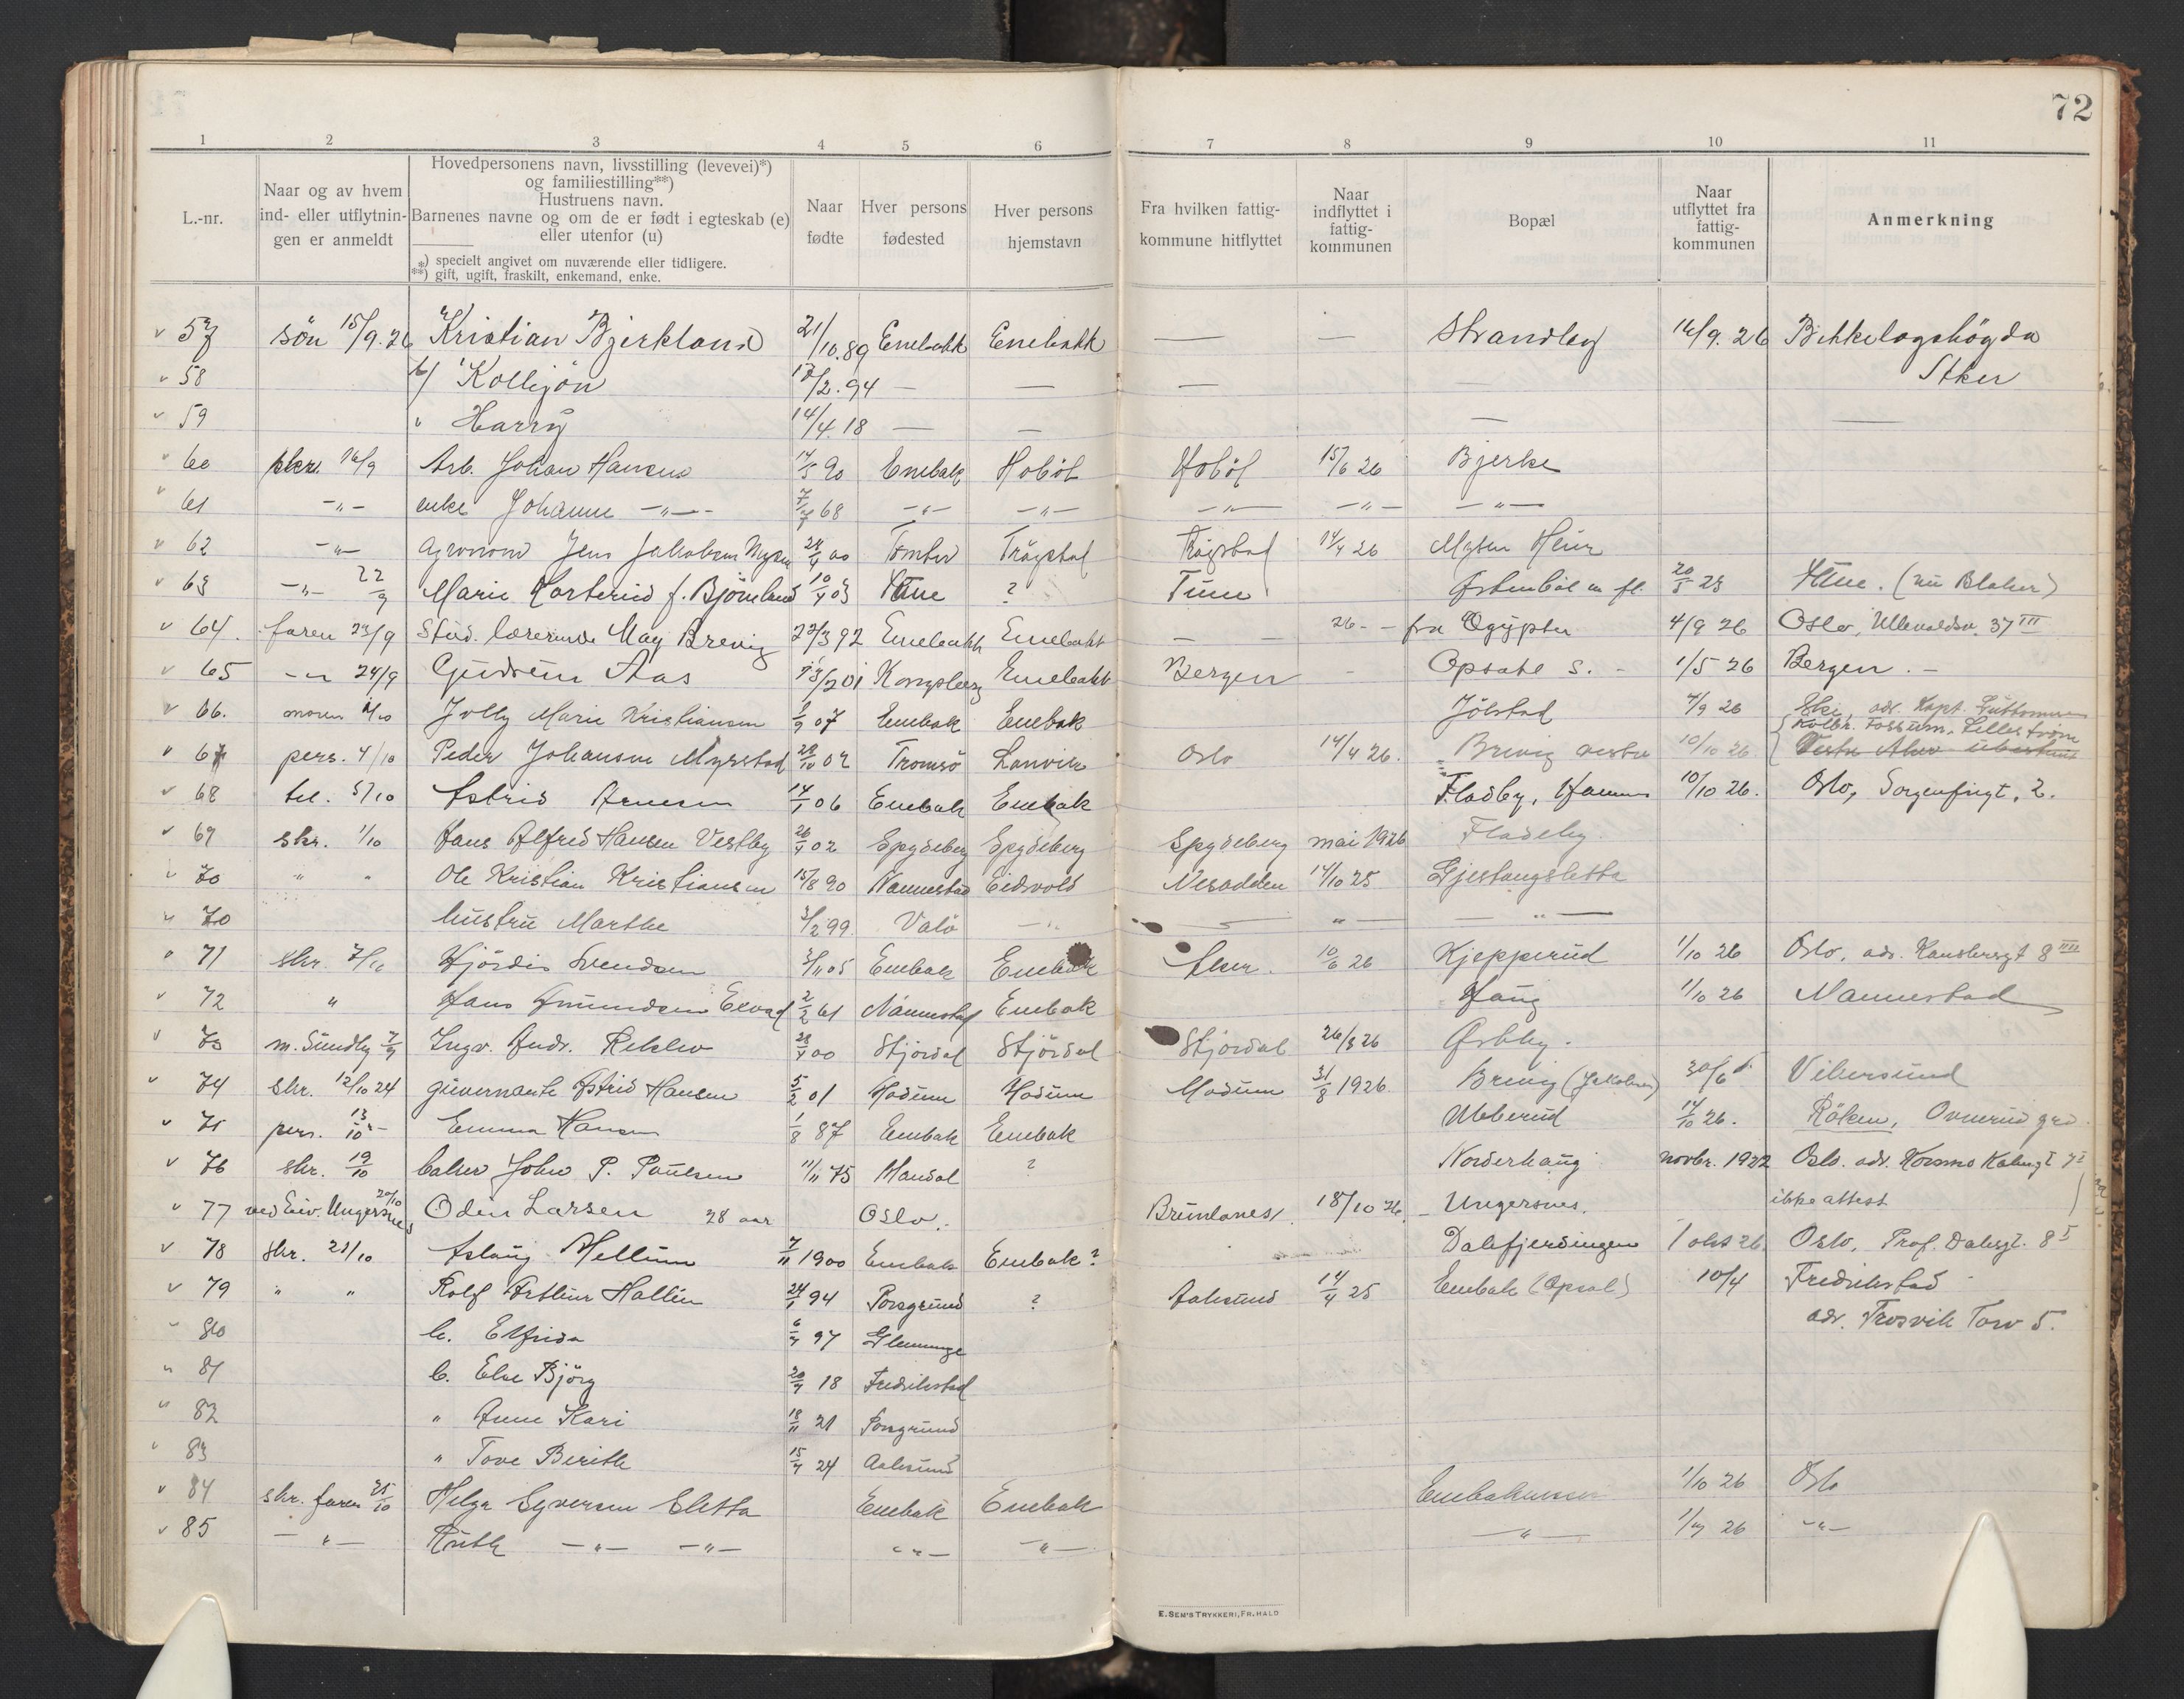 72
1 2 3 4 5 6 7 8 9 10 11
L.-nr.
Naar og av hvem ind- eller utflytningen er anmeldt
Hovedpersonens navn, livsstilling (levevei)*)
og familiestilling**)
Hustruens navn.
Barnenes navne og om de er født i egteskab (e)
eller utenfor (u)
*) specielt angivet om nuværende eller tidligere.
**) gift, ugift, fraskilt, enkemand, enke.
Naar fødte
Hver persons fødested
Hver persons hjemstavn
Fra hvilken fattigkommune hitflyttet
Naar indflyttet i fattigkommunen
Bopæl
Naar utflyttet fra fattigkommunen
Anmerkning
v 57 søn 15/9.26 Kristian Bjerkland 21/10.89 Enebakk Enebakk — — Strandby 16/9.26 Bekkelagshögda
v 58 17/2.94 — — — Aker
v 59 " Harry 14/4.18 — — — —
v 60 skr. 16/9 Arb. Johan Hansen 90 Enebak Hobøl Hobøl 15/6 26 Bjerke
v 61 -"- enke Johanne -"- 68 -"- -"- -"- -"- -"-
v 62 -"- agronom Jens Jakobsen Mysen 00 Tomter Trögstad Trögstad 14/4 26 Mysen
v 63 -"- 22/9 Marie f. Björnland 10/4 03 Tune ? Tune Østenbøl m fl. 20/5 25 Tune. (nu Blaker)
v 64. faren 23/9 Stud. lærerinde May Brevig 22/3 92 Enebakk Enebakk — — 26 - fra Ægypten 4/9 26 Oslo, Ullevaldsv. 37 III
v 65 -"- 24/9 Gudrun Aas 01 Kongsberg Enebakk Bergen - Opsahl S. - 1/5 26 Bergen. -
v 66. moren Jolly Marie Kristiansen 07 Enebak Enebak Jölstad 7/9 26 Ski, adr. Kapt. Guttormsen
v 67 pers. 4/10 Peder Johansen Myrstad 02 Tromsö Oslo 14/4 26. Brevig vestre 10/10 26 Kolbr. Fossum, Lilleström
v 68 tel. 5/10 Astrid Arnesen 06 Enebak Enebak Fladby, 10/10 26. Oslo, Sorgenfrigt, 2.
v 69 skr. 1/10 Hans Alfred Hansen Vestby 26/4 02 Spydeberg Spydeberg Spydeberg mai 1926 Fladeby
v 70 " " Ole Kristian Kristiansen 15/8 90 Nannestad Eidsvold Nesodden 14/10 25 Gjestangsletta
" 70 hustru Marthe 3/2 99. Valö -"- — " — — " —
" 71 skr. 7/10 Hjördis Svendsen 3/11 05 Enebak Enebak Aker. 10/6 26 Kjepperud 1/10 26 Oslo, adr.
v 72 " Hans Amundsen 2/2 61 Nannestad Enebak Haug 1/10 26 Nannestad
v 73 m. Sundby Ingv. Andr. 00 Stjördal Stjördal Stjördal 26/8 26 Østby.
v 74 skr. 12/10 24 guvernante Astrid Hansen 5/2 01 Modum Modum Modum 31/8 1926. Brevig (Jakobsen) 30/6 Vikersund
v 75 pers. 13/10 Emma Hansen 1/8 87 Enebak Enebak Ubberud 14/10 26. Röken,
v 76 skr. 19/10 baker John P. Paulsen 11/11 75 Mandal ? Norderhaug novbr. 1922 Oslo. adr.
v 77 ved Eiv. Ungersnes 20/10 Oden Larsen 28 aar Oslo. Brunlanes. 18/10 26. - Ungersnes. ikke attest
v 78 skr. 21/10 Aslaug Mellum 7/11 1900 Enebak Enebak? Dalefjerdingen 1 okt 26. Oslo, Prof. Dahlsgt. 8 I
v 79 " " Rolf Arthur Hallén 94 Porsgrund ? Aalesund 14/4 25 Enebak (Opsal) 10/4 Fredrikstad
" 80 h. Elfrida 97 Glemminge adr. Trosvik Torv 5.
" 81 b. Else Björg 18 Fredrikstad
" 82 " Anne Kari 18/11 21 Porsgrund
" 83 " Tove Berith 24 Aalesund
v 84 skr. faren 25/10 Helga Syversen Sletta Enebak Enebak 1/10 26 Oslo
v 85 — " — Ruth -"- -"- -"- -"- -"- 26 -"-
E. SEM'S TRYKKERI, FR.HALD